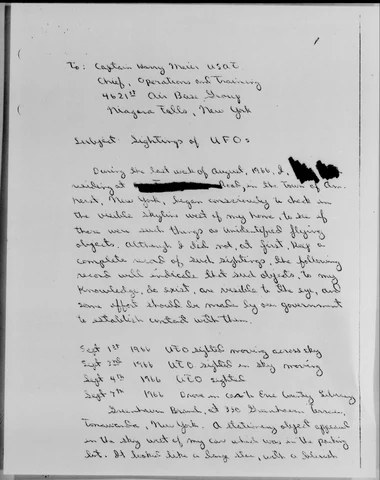 1
To: Captain Harry Meier USAF
Chief, Operations and Training
4621st Air Base Group
Niagara Falls, New York
Subject: Sightings of UFOs
During the last week of August, 1966, I,
residing at Road, in the Town of Am-
herst, New York, began consciously to check in
the visible skyline west of my home, to see if
there were such things as unidentified flying
objects. Although I did not, at first, keep a
complete record of such sightings, the following
record will indicate that such objects, to my
knowledge, do exist, are visible to the eye, and
some effort should be made by our government
to establish contact with them.
Sept 1st 1966 UFO sighted moving across sky
Sept 2nd 1966 UFO sighted in sky moving
Sept 4th 1966 UFO sighted
Sept 7th 1966 Drove in car to Erie County Library
Greenhaven Branch, at 350 Greenhaven Terrace,
Tonawanda, New York. A stationary object appeared
in the sky west of my car which was in the parking
lot. It looked like a large star, with a bluish